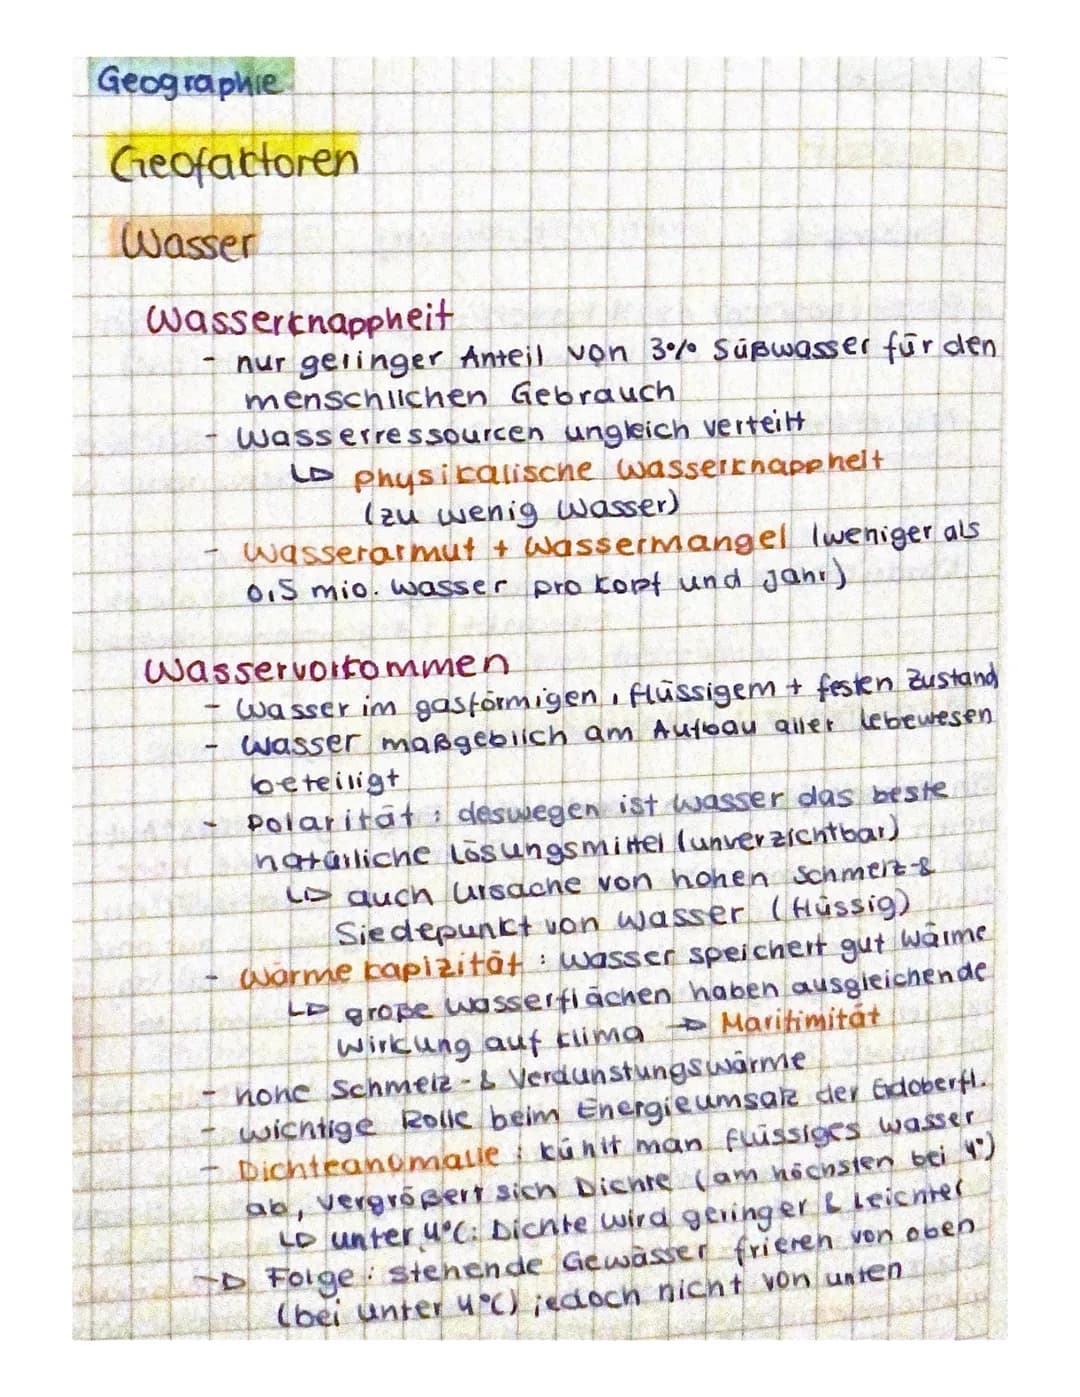 Geographie
Geofaktoren
Wasser
Wasserknappheit
- nur geringer Anteil von 3% Süßwasser für den
menschlichen Gebrauch
- Wasserressourcen ungleich verteilt
↳ physikalische Wasserknappheit
(zu wenig Wasser)
- Wasserarmut + Wassermangel (weniger als
0,5 mio. Wasser pro Kopf und Jahr)
Wasservorkommen
- Wasser im gasförmigen, flüssigem + festen Zustand
- Wasser maßgeblich am Aufbau aller Lebewesen
beteiligt
- Polarität: deswegen ist Wasser das beste
natürliche Lösungsmittel (unverzichtbar)
↳ auch Ursache von hohen Schmelz- &
Siedepunkt von Wasser (flüssig)
- Wärmekapizität: Wasser speichert gut Wärme
↳ große Wasserflächen haben ausgleichende
Wirkung auf Klima → Maritimität
- hohe Schmelz- & Verdunstungswärme
- wichtige Rolle beim Energieumsatz der Erdoberfl.
- Dichteanomalie: kühlt man flüssiges Wasser
ab, vergrößert sich Dichte (am höchsten bei 4°)
↳ unter 4°C: Dichte wird geringer & leichter
→ Folge: stehende Gewässer frieren von oben
(bei unter 4°C) jedoch nicht von unten